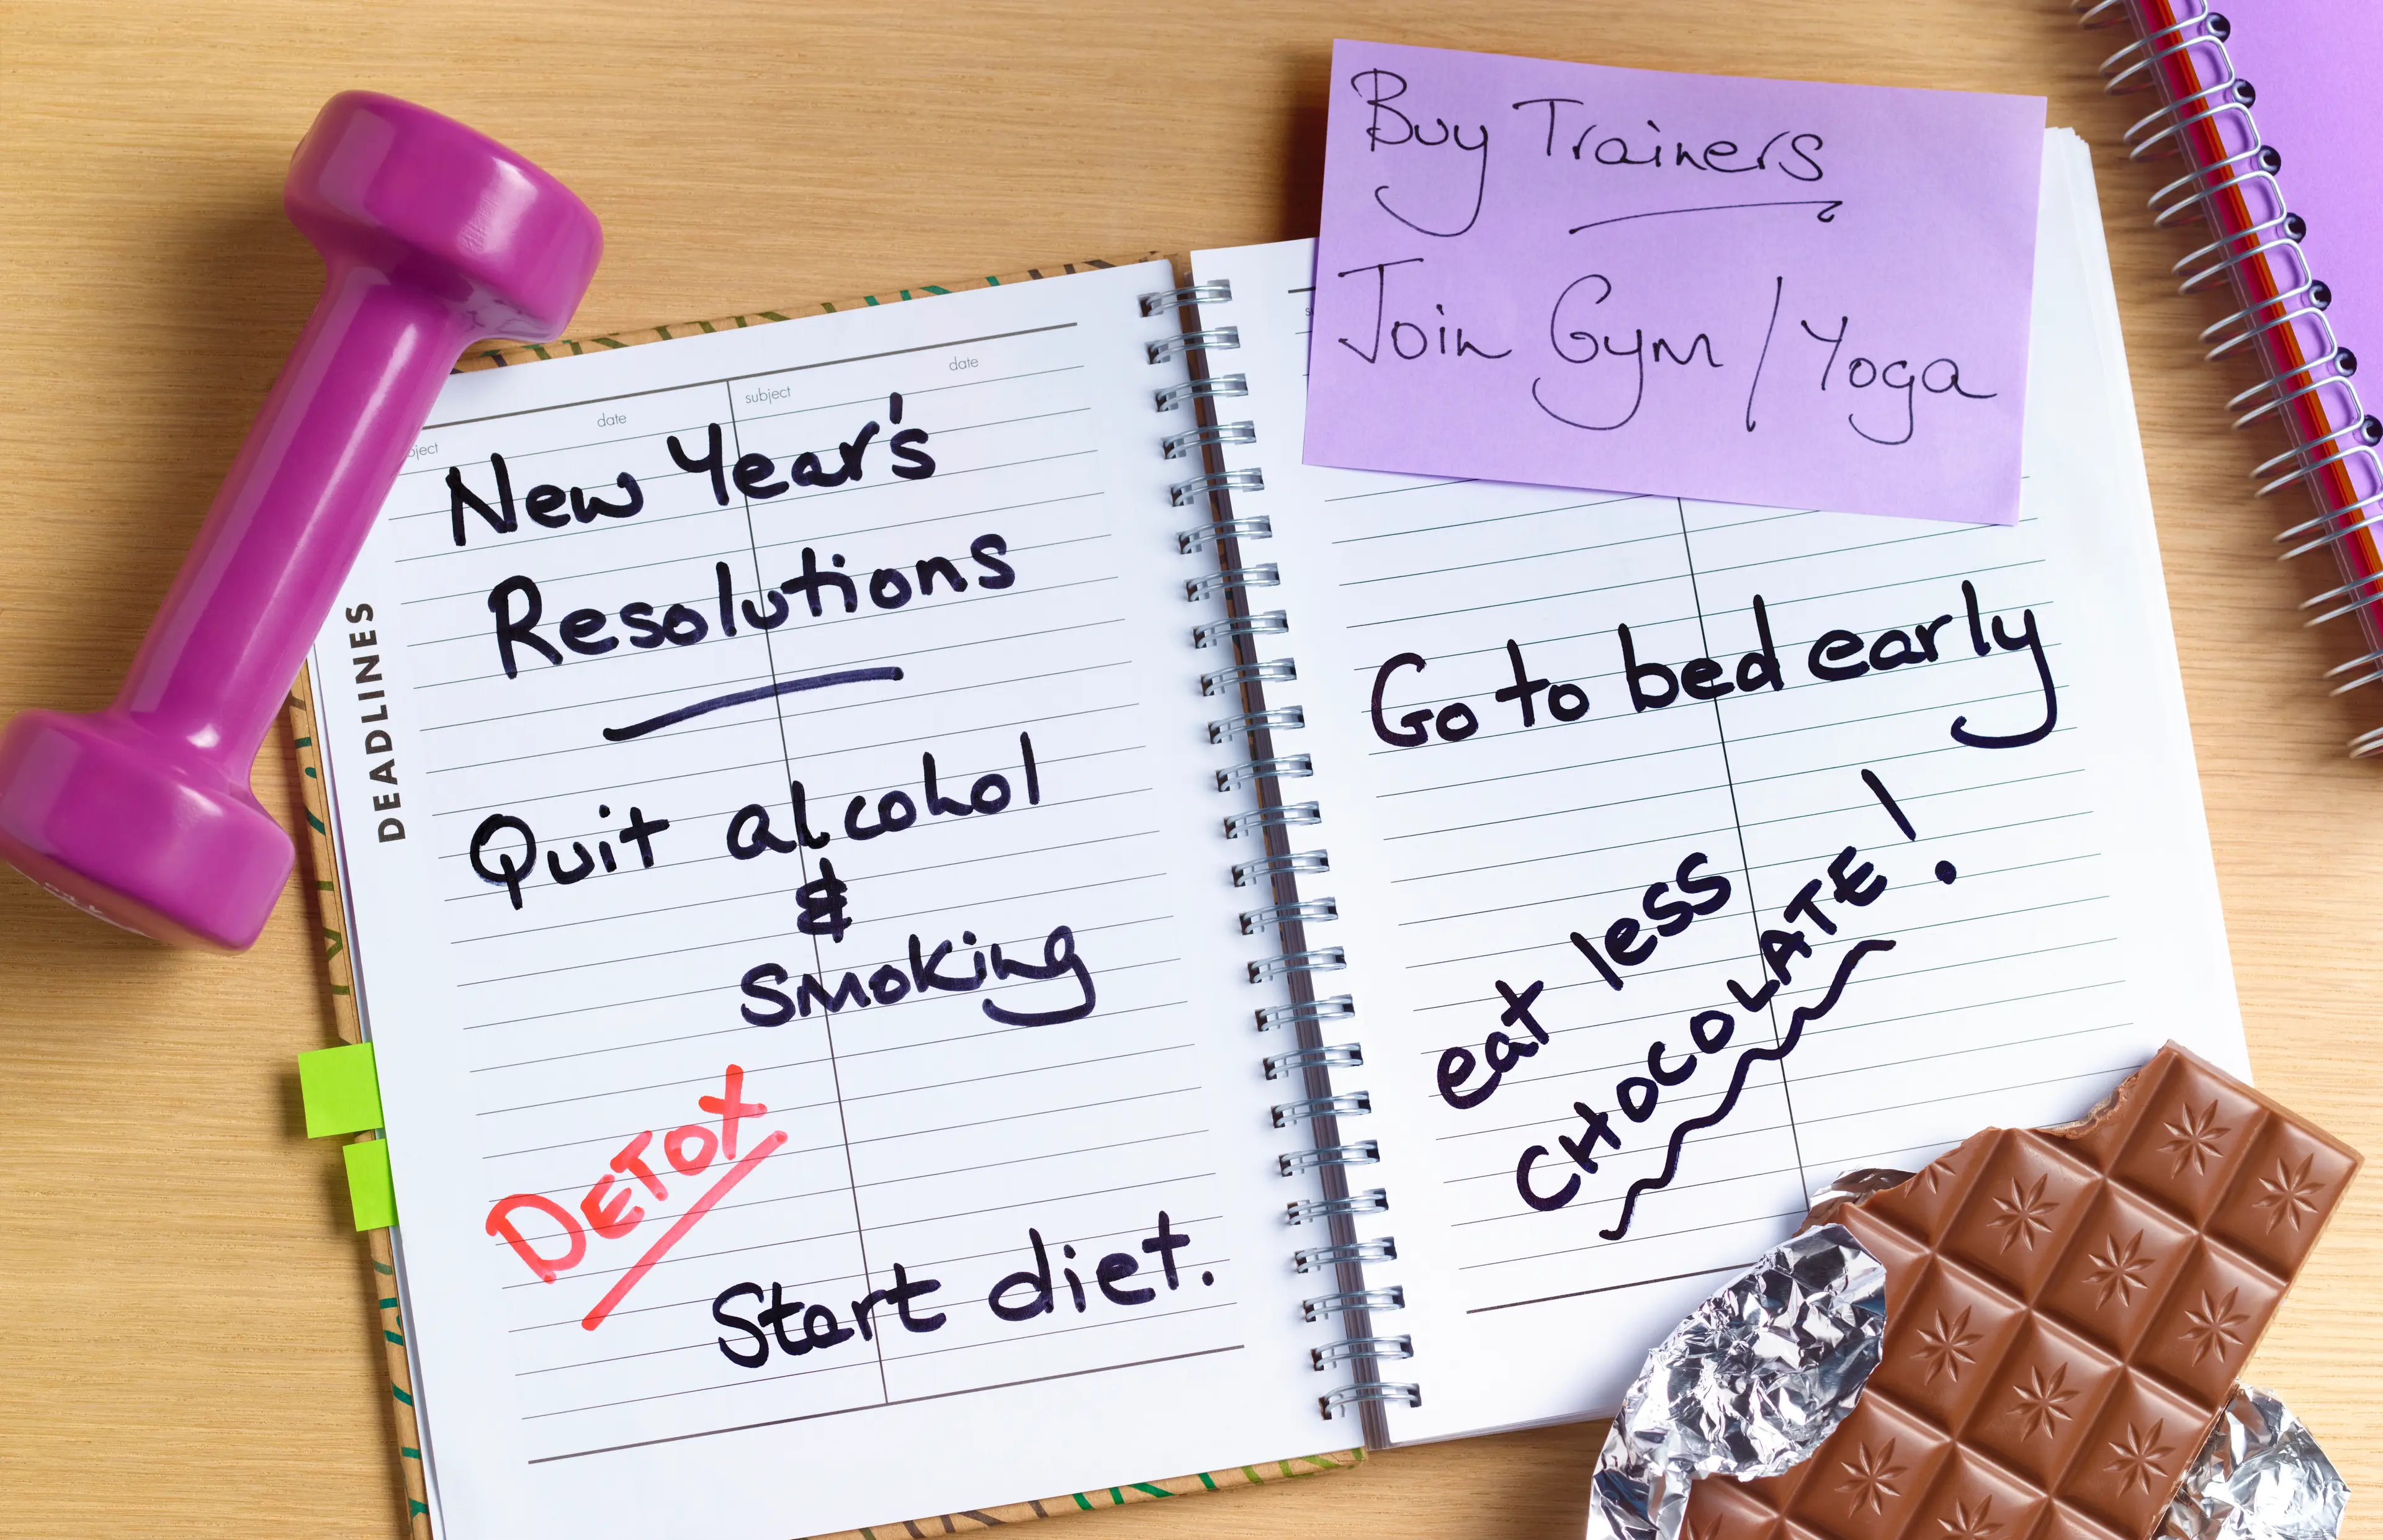 Buy Trainers
Join Gym / Yoga
subject date
date
New Year's
Resolutions
DEADLINES
Quit alcohol
&
smoking
DETOX
Start diet.
Go to bed early
eat less
CHOCOLATE!